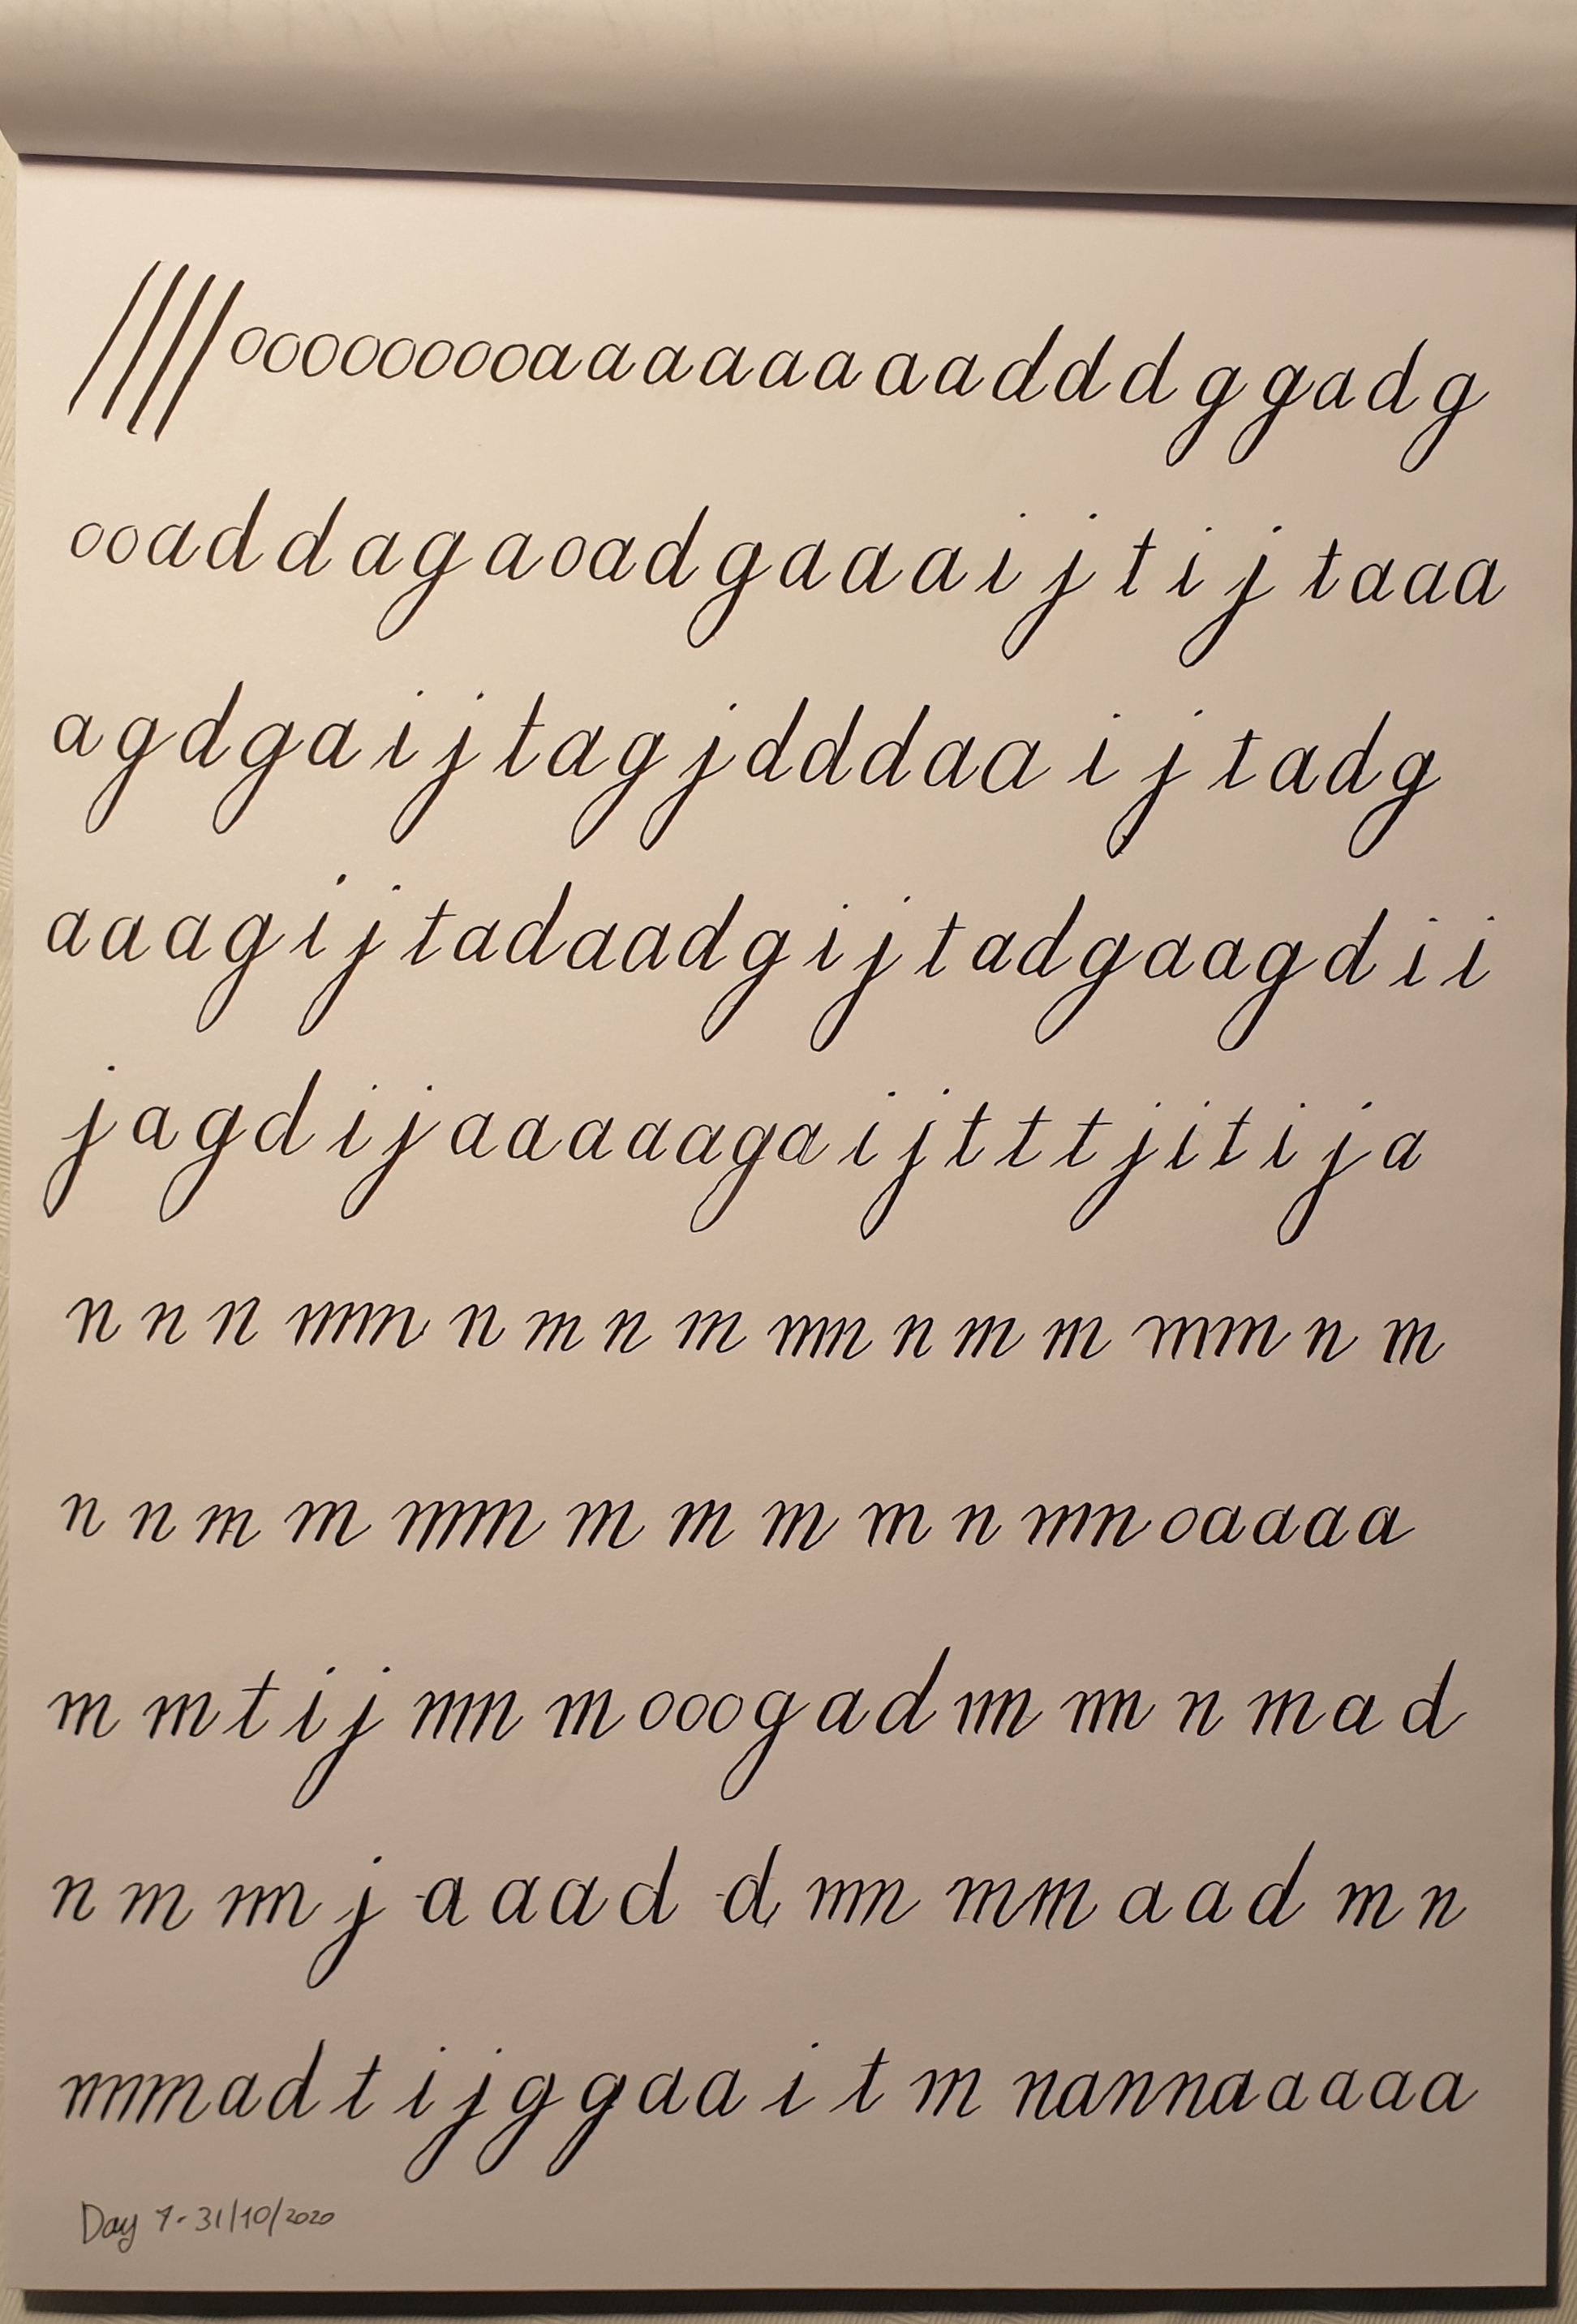 ////ooooooooaaaaaaaadddggadg
ooaddagaoadgaaaijtijtaaa
agdgaijtagjdddaaijtadg
aaagijtadaadgijtadgaagdii
jagdijaaaaagaijtttjitija
n n n mm n m n m mn n m m mm n m
n n m m mm m m m m n mn oaaaa
m m t i j mn m ooog a d m m n m a d
n m m j a a a d d mn mm a a d m n
mmadtijggaa i t m nannaaaaa
Day 1 - 31/10/2020